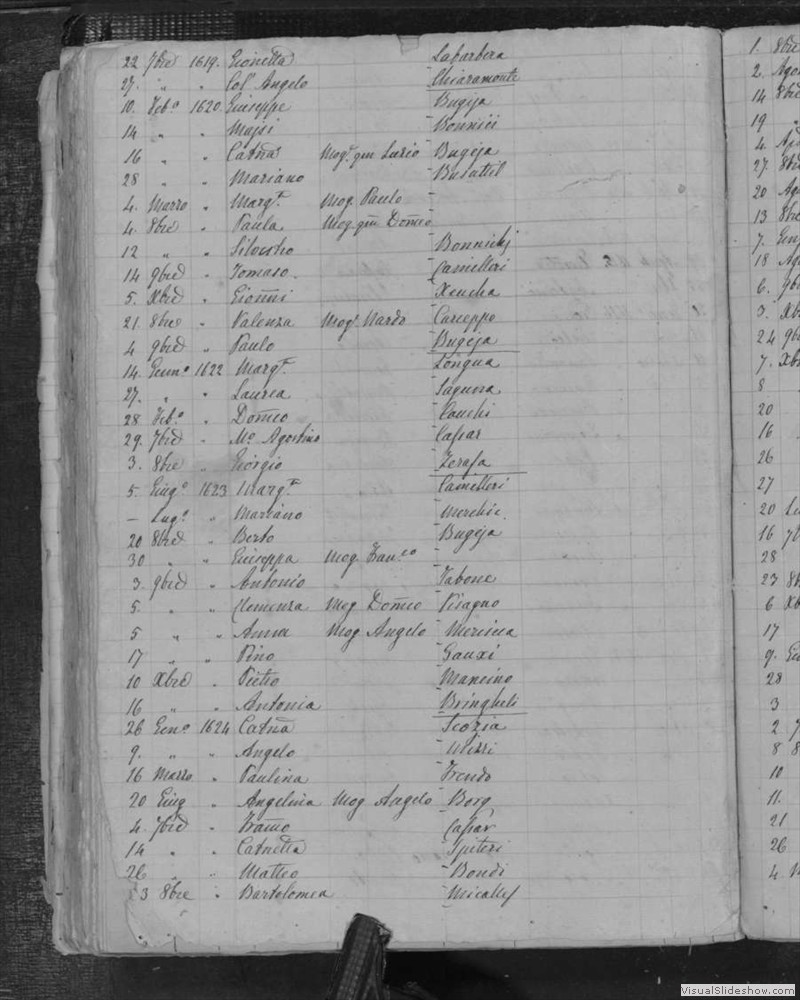 22 7bre 1619. Gionetta Labarbera
27. " " Col' Angelo Chiaramonte
10. Feb.o 1620. Giuseppe Bugeja
14 " " Majsi Bonnici
16 " " Catña Mog.e qm Lucio Bugeja
28 " " Mariano Busuttil
4. Marzo " Marg.ta Mog. Paulo -
4. 8bre " Paula Mog. qm Dom̃co
12 " " Silvestro Bonnichj
14 9bre " Tomaso. Camilleri
5. Xbre " Gioñni Xeucha
21. 8bre " Valenza Mog.e Nardo Cureppo
4 9bre " Paulo Bugeja
14. Genn.o 1622 Marg.ta Longua
27. " " Laurea Laguna
28 Feb.o " Dom̃co Cauchi
29. 7bre " M.o Agostino Cassar
3. 8bre " Giorgio Zerafa
5. Giug.o 1623 Marg.ta Camilleri
- Lug.o " Mariano
20 8bre " Berto Bugeja
30 " " Giuseppa Mog. Fran.co -
3. 9bre " Antonio Tabone
5. " " Clemenza Mog Dom̃co Pisagno
5 " " Anna Mog Angelo Mersieca
17 " " Pino Gauxi
10 Xbre " Pietro Mancino
16 " " Antonia Bringheli
26 Gen.o 1624 Catña Scozia
9. " " Angelo
26 Marzo " Paulina Frendo
20 Giug " Angelina Mog Angelo Borg
4. 7bre " Cassar
14 " " Catnetta Spiteri
26 " " Matteo Bondi
3 8bre " Bartolomea Micallef
1. 8bre
2. Agos
14 8bre
19 "
4.
27. 8bre
20 Ag
13 8bre
7.
18 Ago
6. 9b
3. Xb
24 9b
7. Xb
8
20
16
26
27
20 Lu
16 7b
28
23 8b
6 Xb
17
9. Gi
28
3
2 7
8 8
10
11.
21
26
4.
VisualSlideshow.com